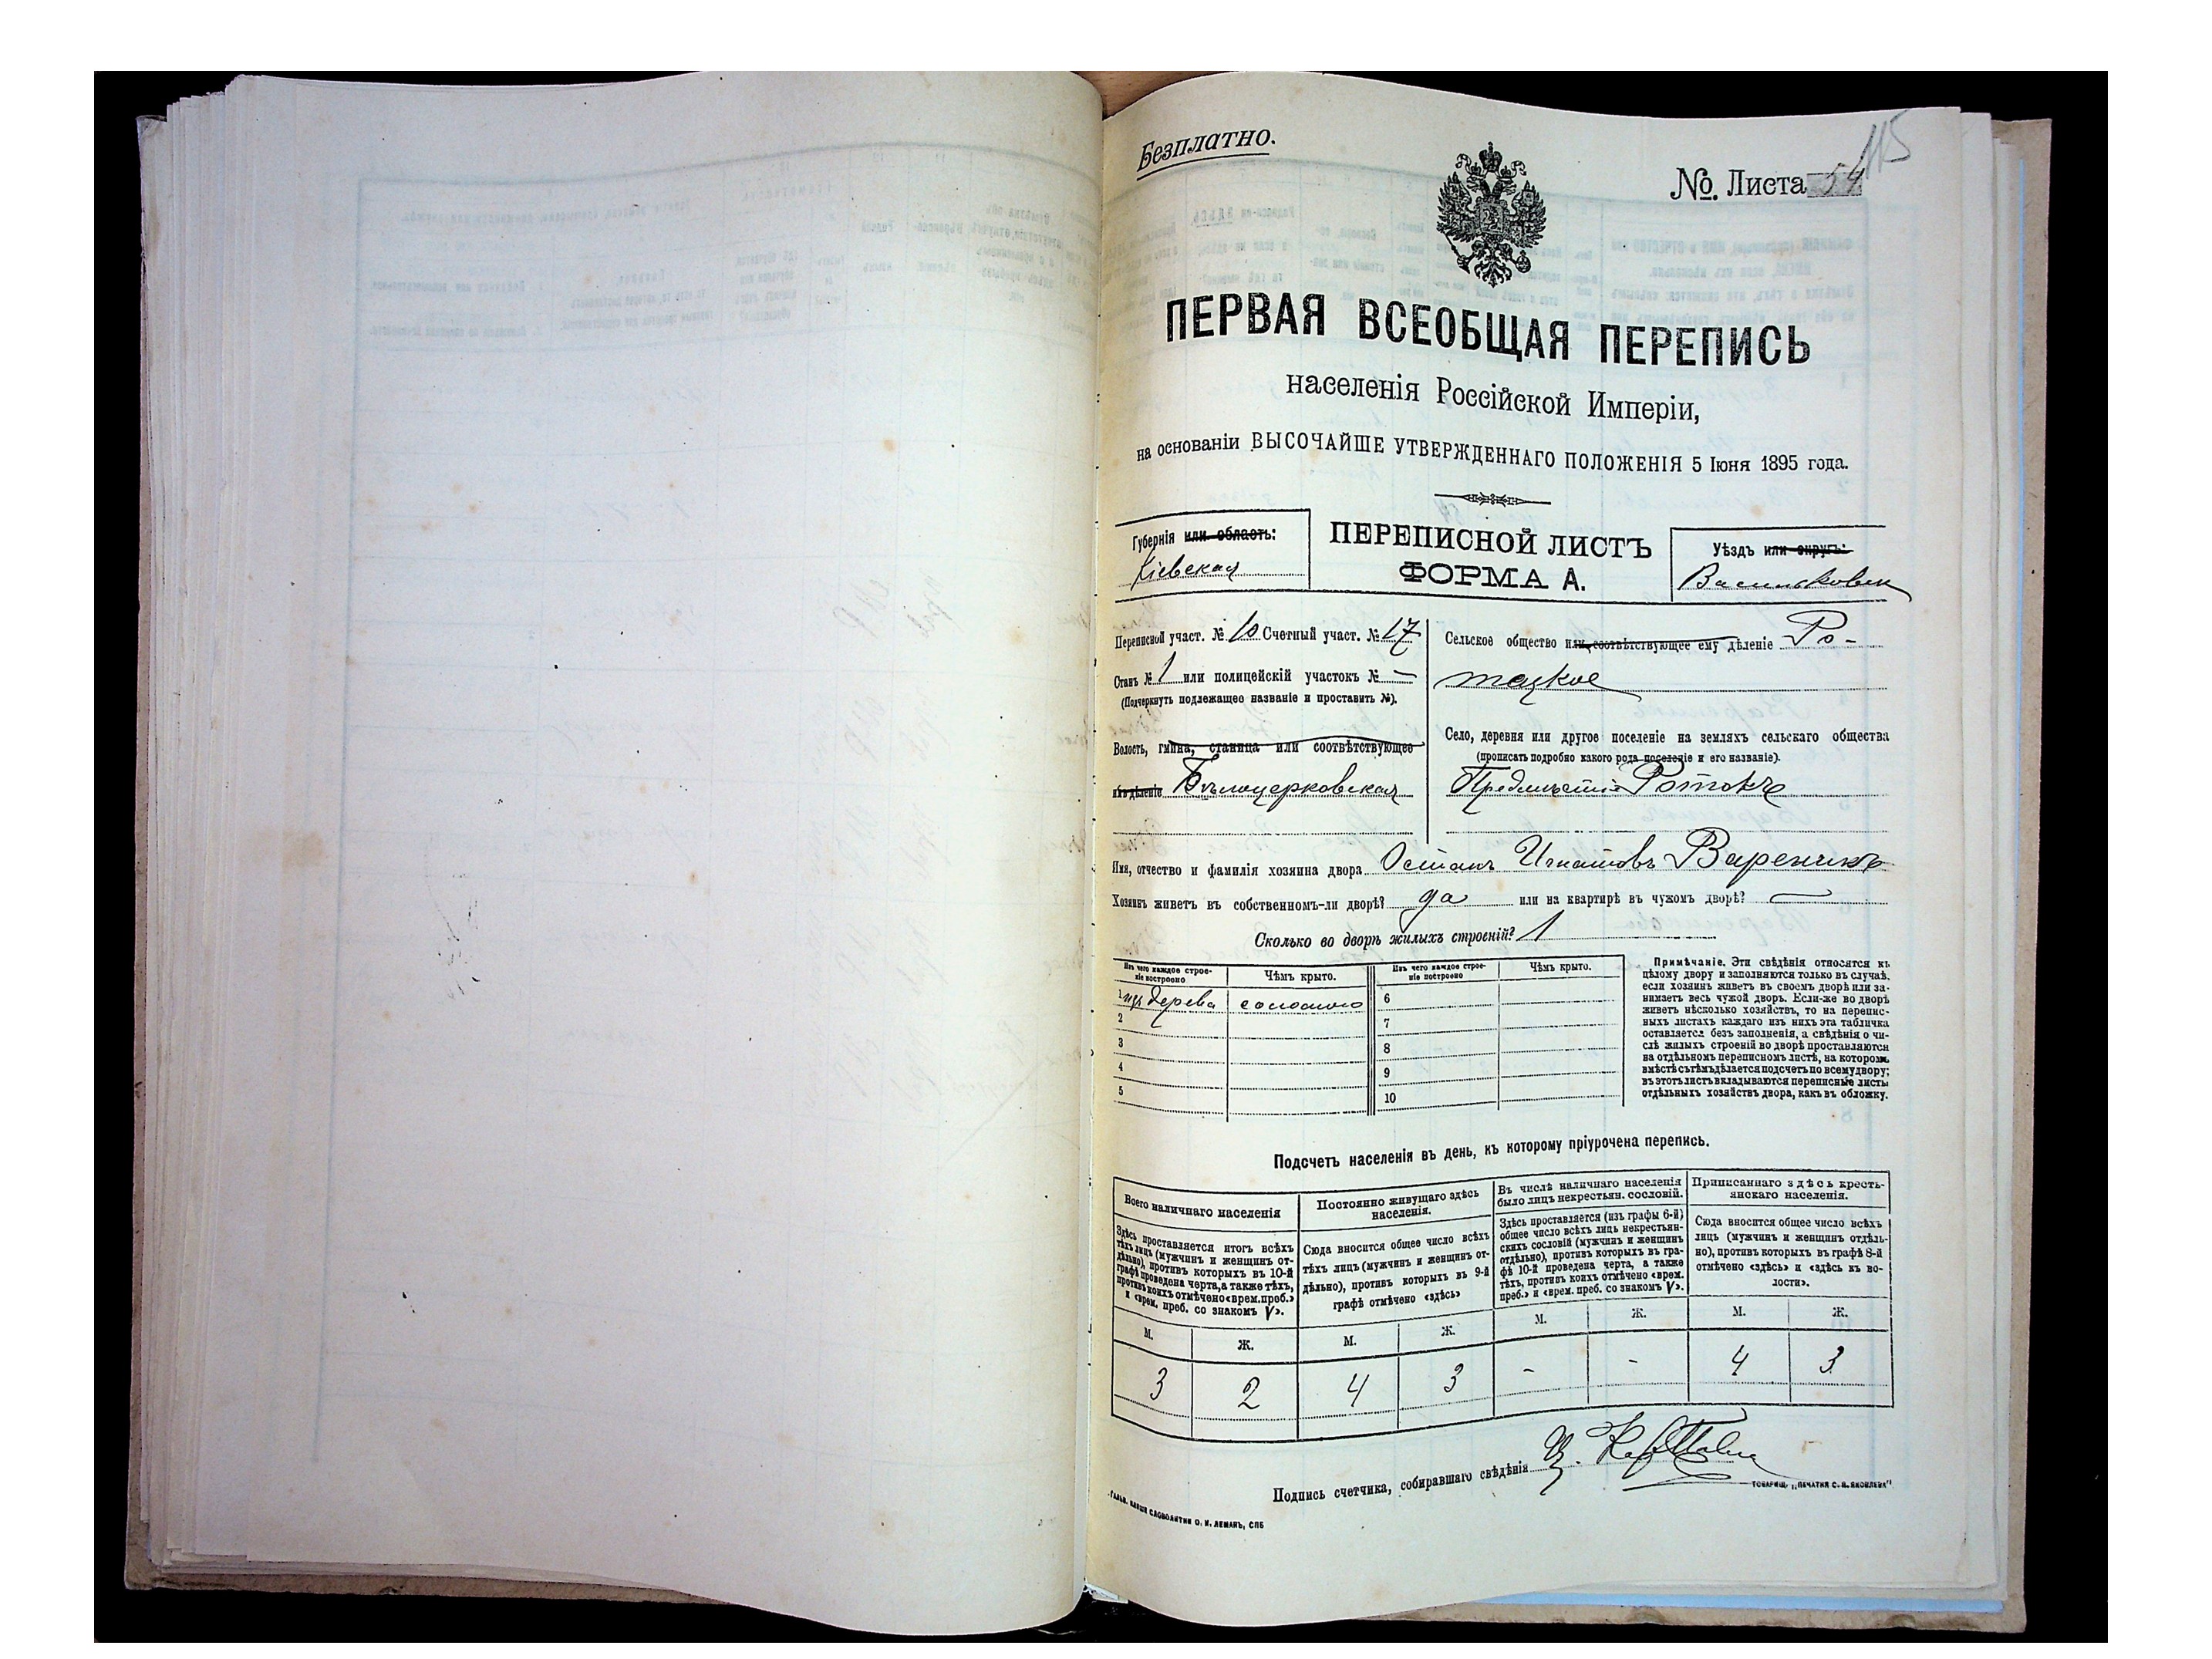 Безплатно.
115
№. Листа 54
ПЕРВАЯ ВСЕОБЩАЯ ПЕРЕПИСЬ
населенія Россійской Имперіи,
на основаніи ВЫСОЧАЙШЕ УТВЕРЖДЕННАГО ПОЛОЖЕНІЯ 5 Іюня 1895 года.
Губернія или область:
Кіевская
ПЕРЕПИСНОЙ ЛИСТЪ
ФОРМА А.
Уѣздъ или округъ:
Васильковск
Переписной участ. № 10 Счетный участ. № 17
Станъ № 1 или полицейскій участокъ № —
(Подчеркнуть подлежащее названіе и проставить №).
Волость, гмина, станица или соотвѣтствующее
имъ дѣленіе Бѣлоцерковская
Сельское общество или соотвѣтствующее ему дѣленіе Ро-
тоцкое
Село, деревня или другое поселеніе на земляхъ сельскаго общества
(прописать подробно какого рода поселеніе и его названіе).
Предмѣстіе Ротокъ
Имя, отчество и фамилія хозяина двора Остапъ Игнатовъ Вареникъ
Хозяинъ живетъ въ собственномъ-ли дворѣ? да или на квартирѣ въ чужомъ дворѣ? —
Сколько во дворѣ жилыхъ строеній? 1
Изъ чего каждое строе-
ніе построено
Чѣмъ крыто.
1 изъ дерева соломою
2
3
4
5
Изъ чего каждое строе-
ніе построено
Чѣмъ крыто.
6
7
8
9
10
Примѣчаніе. Эти свѣдѣнія относятся къ
цѣлому двору и заполняются только въ случаѣ,
если хозяинъ живетъ въ своемъ дворѣ или за-
нимаетъ весь чужой дворъ. Если-же во дворѣ
живетъ нѣсколько хозяйствъ, то на перепис-
ныхъ листахъ каждаго изъ нихъ эта табличка
оставляется безъ заполненія, а свѣдѣнія о чи-
слѣ жилыхъ строеній во дворѣ проставляются
на отдѣльномъ переписномъ листѣ, на которомъ
вмѣстѣ съ тѣмъ дѣлается подсчетъ по всему двору;
въ этотъ листъ вкладываются переписные листы
отдѣльныхъ хозяйствъ двора, какъ въ обложку.
Подсчетъ населенія въ день, къ которому пріурочена перепись.
Всего наличнаго населенія
Здѣсь проставляется итогъ всѣхъ
тѣхъ лицъ (мужчинъ и женщинъ от-
дѣльно), противъ которыхъ въ 10-й
графѣ проведена черта, а также тѣхъ,
противъ коихъ отмѣчено «врем. преб.»
и «врем. преб. со знакомъ V».
Постоянно живущаго здѣсь
населенія.
Сюда вносится общее число всѣхъ
тѣхъ лицъ (мужчинъ и женщинъ от-
дѣльно), противъ которыхъ въ 9-й
графѣ отмѣчено «здѣсь»
Въ числѣ наличнаго населенія
было лицъ некрестьян. сословій.
Здѣсь проставляется (изъ графы 6-й)
общее число всѣхъ лицъ некрестьян-
скихъ сословій (мужчинъ и женщинъ
отдѣльно), противъ которыхъ въ гра-
фѣ 10-й проведена черта, а также
тѣхъ, противъ коихъ отмѣчено «врем.
преб.» и «врем. преб. со знакомъ V».
Приписаннаго здѣсь кресть-
янскаго населенія.
Сюда вносится общее число всѣхъ
лицъ (мужчинъ и женщинъ отдѣль-
но), противъ которыхъ въ графѣ 8-й
отмѣчено «здѣсь» и «здѣсь къ во-
лости».
М. Ж. М. Ж. М. Ж. М. Ж.
3 2 4 3 - - 4 3
Подпись счетчика, собиравшаго свѣдѣнія
ГАЛЬВ. КЛИШЕ СЛОВОЛИТНИ О. И. ЛЕМАНЪ, СПБ
ТОВАРИЩ. „ПЕЧАТНЯ С. П. ЯКОВЛЕВА“